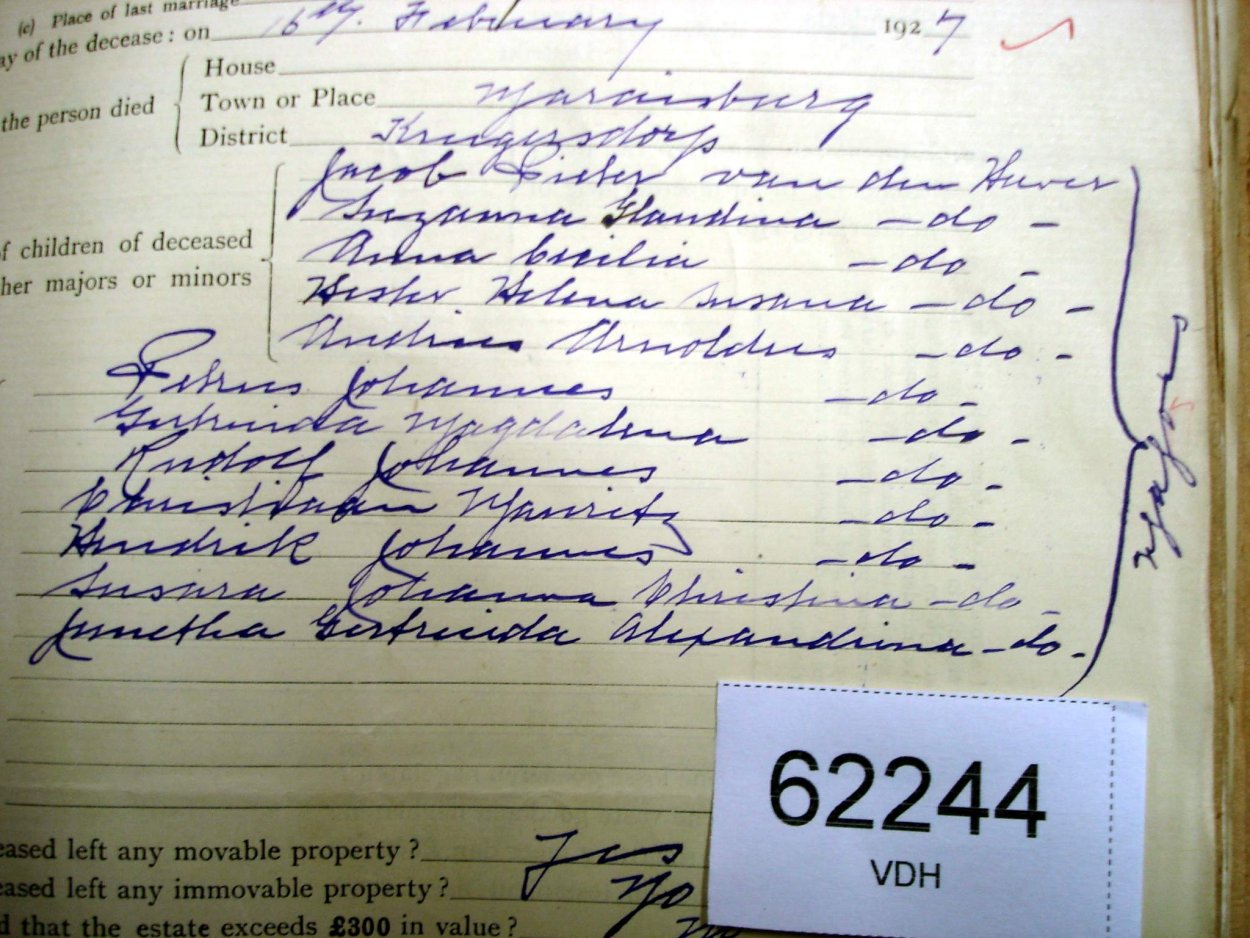 (c) Place of last marriage
ay of the decease: on 16th. February 1927
House
the person died
Town or Place Maraisburg
District Krugersdorp
Jacob Pieter van den Hever
Suzanna Glaudina - do -
Anna Cecilia - do -
of children of deceased
her majors or minors
Hester Helena Susana - do -
Andries Arnoldus - do -
Petrus Johannes - do -
Gertruida Magdalena - do -
Rudolf Johannes - do -
Christiaan Mauritz - do -
Hendrik Johannes - do -
Susara Johanna Christina - do -
Junetha Gertruida Alexandrina - do -
Majors
62244
VDH
eased left any movable property? Yes
eased left any immovable property? No
d that the estate exceeds £300 in value? No